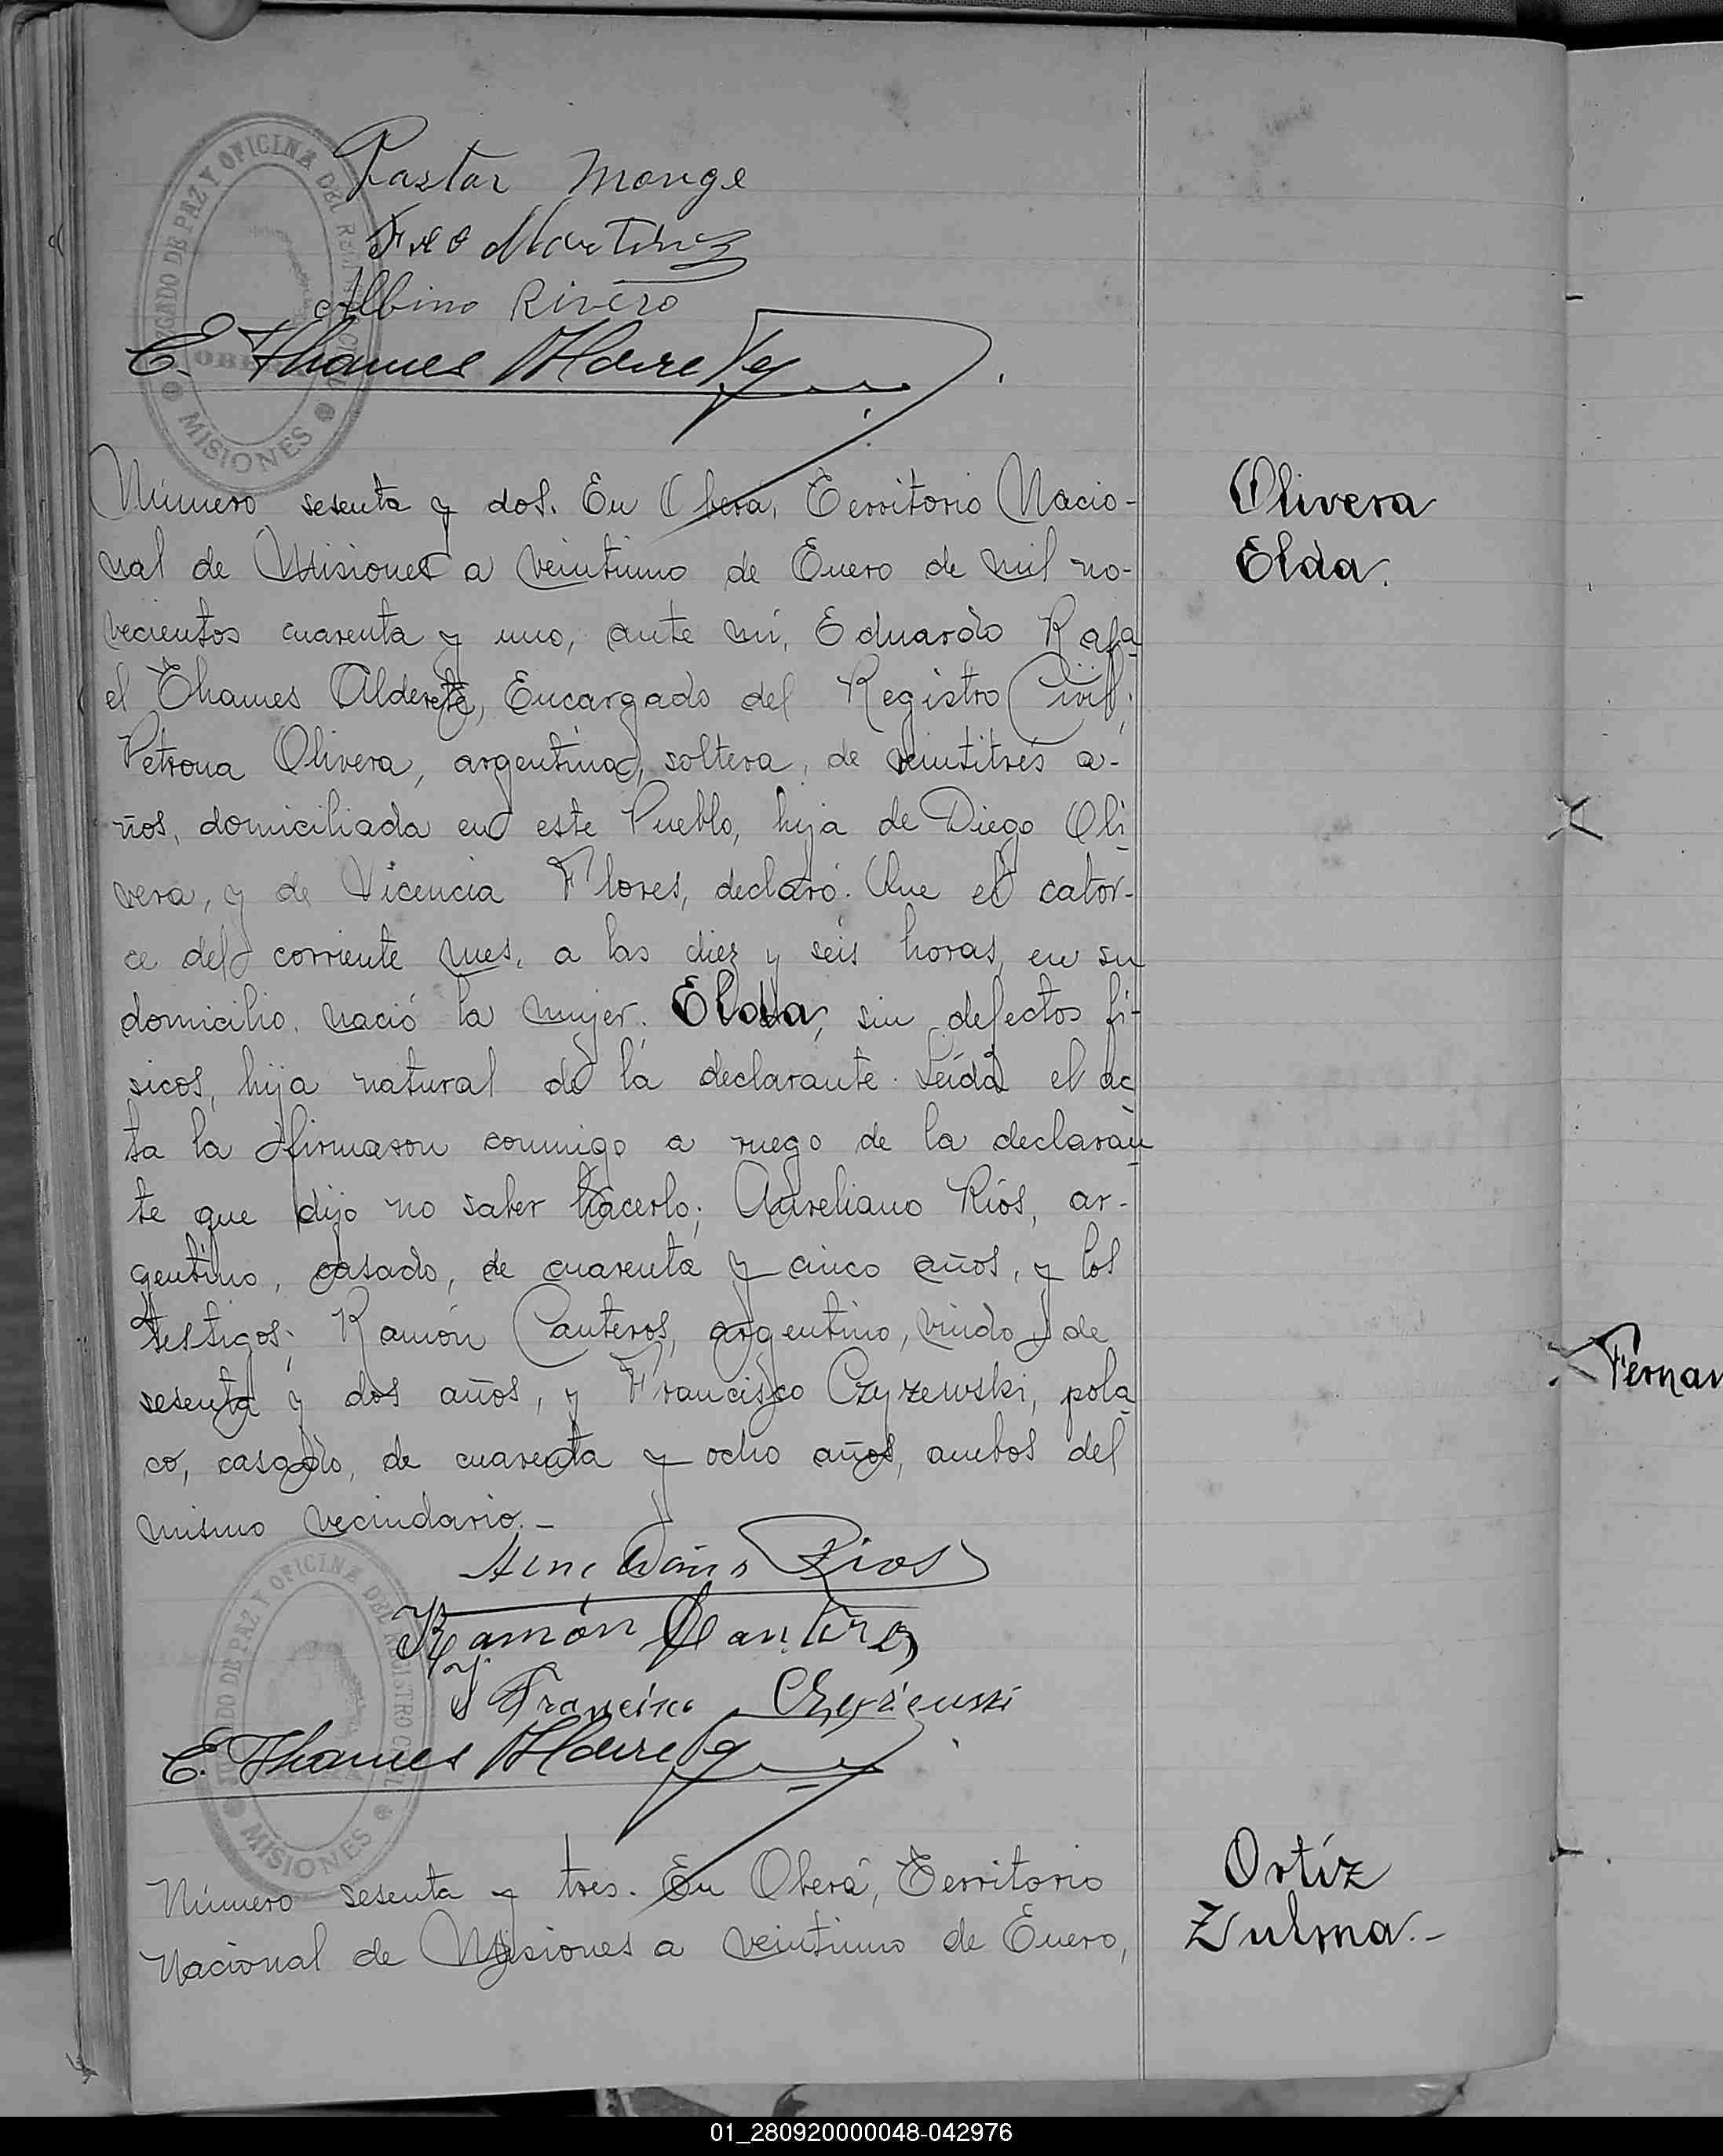 Pastor Monge
Fco Martinez
Albino Rivero
E. Thames Alderete
JUZGADO DE PAZ Y OFICINA DEL REGISTRO CIVIL
OBERA
MISIONES
Número sesenta y dos. En Obera, Territorio Nacio-
nal de Misiones a veintiuno de Enero de mil no-
vecientos cuarenta y uno, ante mi, Eduardo Rafa
el Thames Alderete, Encargado del Registro Civil;
Petrona Olivera, argentina, soltera, de veintitrés a-
ños, domiciliada en este Pueblo, hija de Diego Oli
vera, y de Vicencia Flores, declaró: Que el cator-
ce del corriente mes, a las diez y seis horas, en su
domicilio, nació la mujer: Elda, sin defectos fí-
sicos, hija natural de la declarante. Leída el ac
ta la firmaron conmigo a ruego de la declaran
te que dijo no saber hacerlo; Aureliano Ríos, ar-
gentino, casado, de cuarenta y cinco años, y los
testigos: Ramón Canteros, argentino, viudo, de
sesenta y dos años, y Francisco Czyzewski, pola
co, casado, de cuarenta y ocho años, ambos del
mismo vecindario.-
Olivera
Elda.
Rios
Ramón Cantero
Francisco
E. Thames Alderete
JUZGADO DE PAZ Y OFICINA DEL REGISTRO CIVIL
MISIONES
Número sesenta y tres. En Oberá, Territorio
Nacional de Misiones a veintiuno de Enero,
Ortíz
Zulma.-
Fernan
01_280920000048-042976